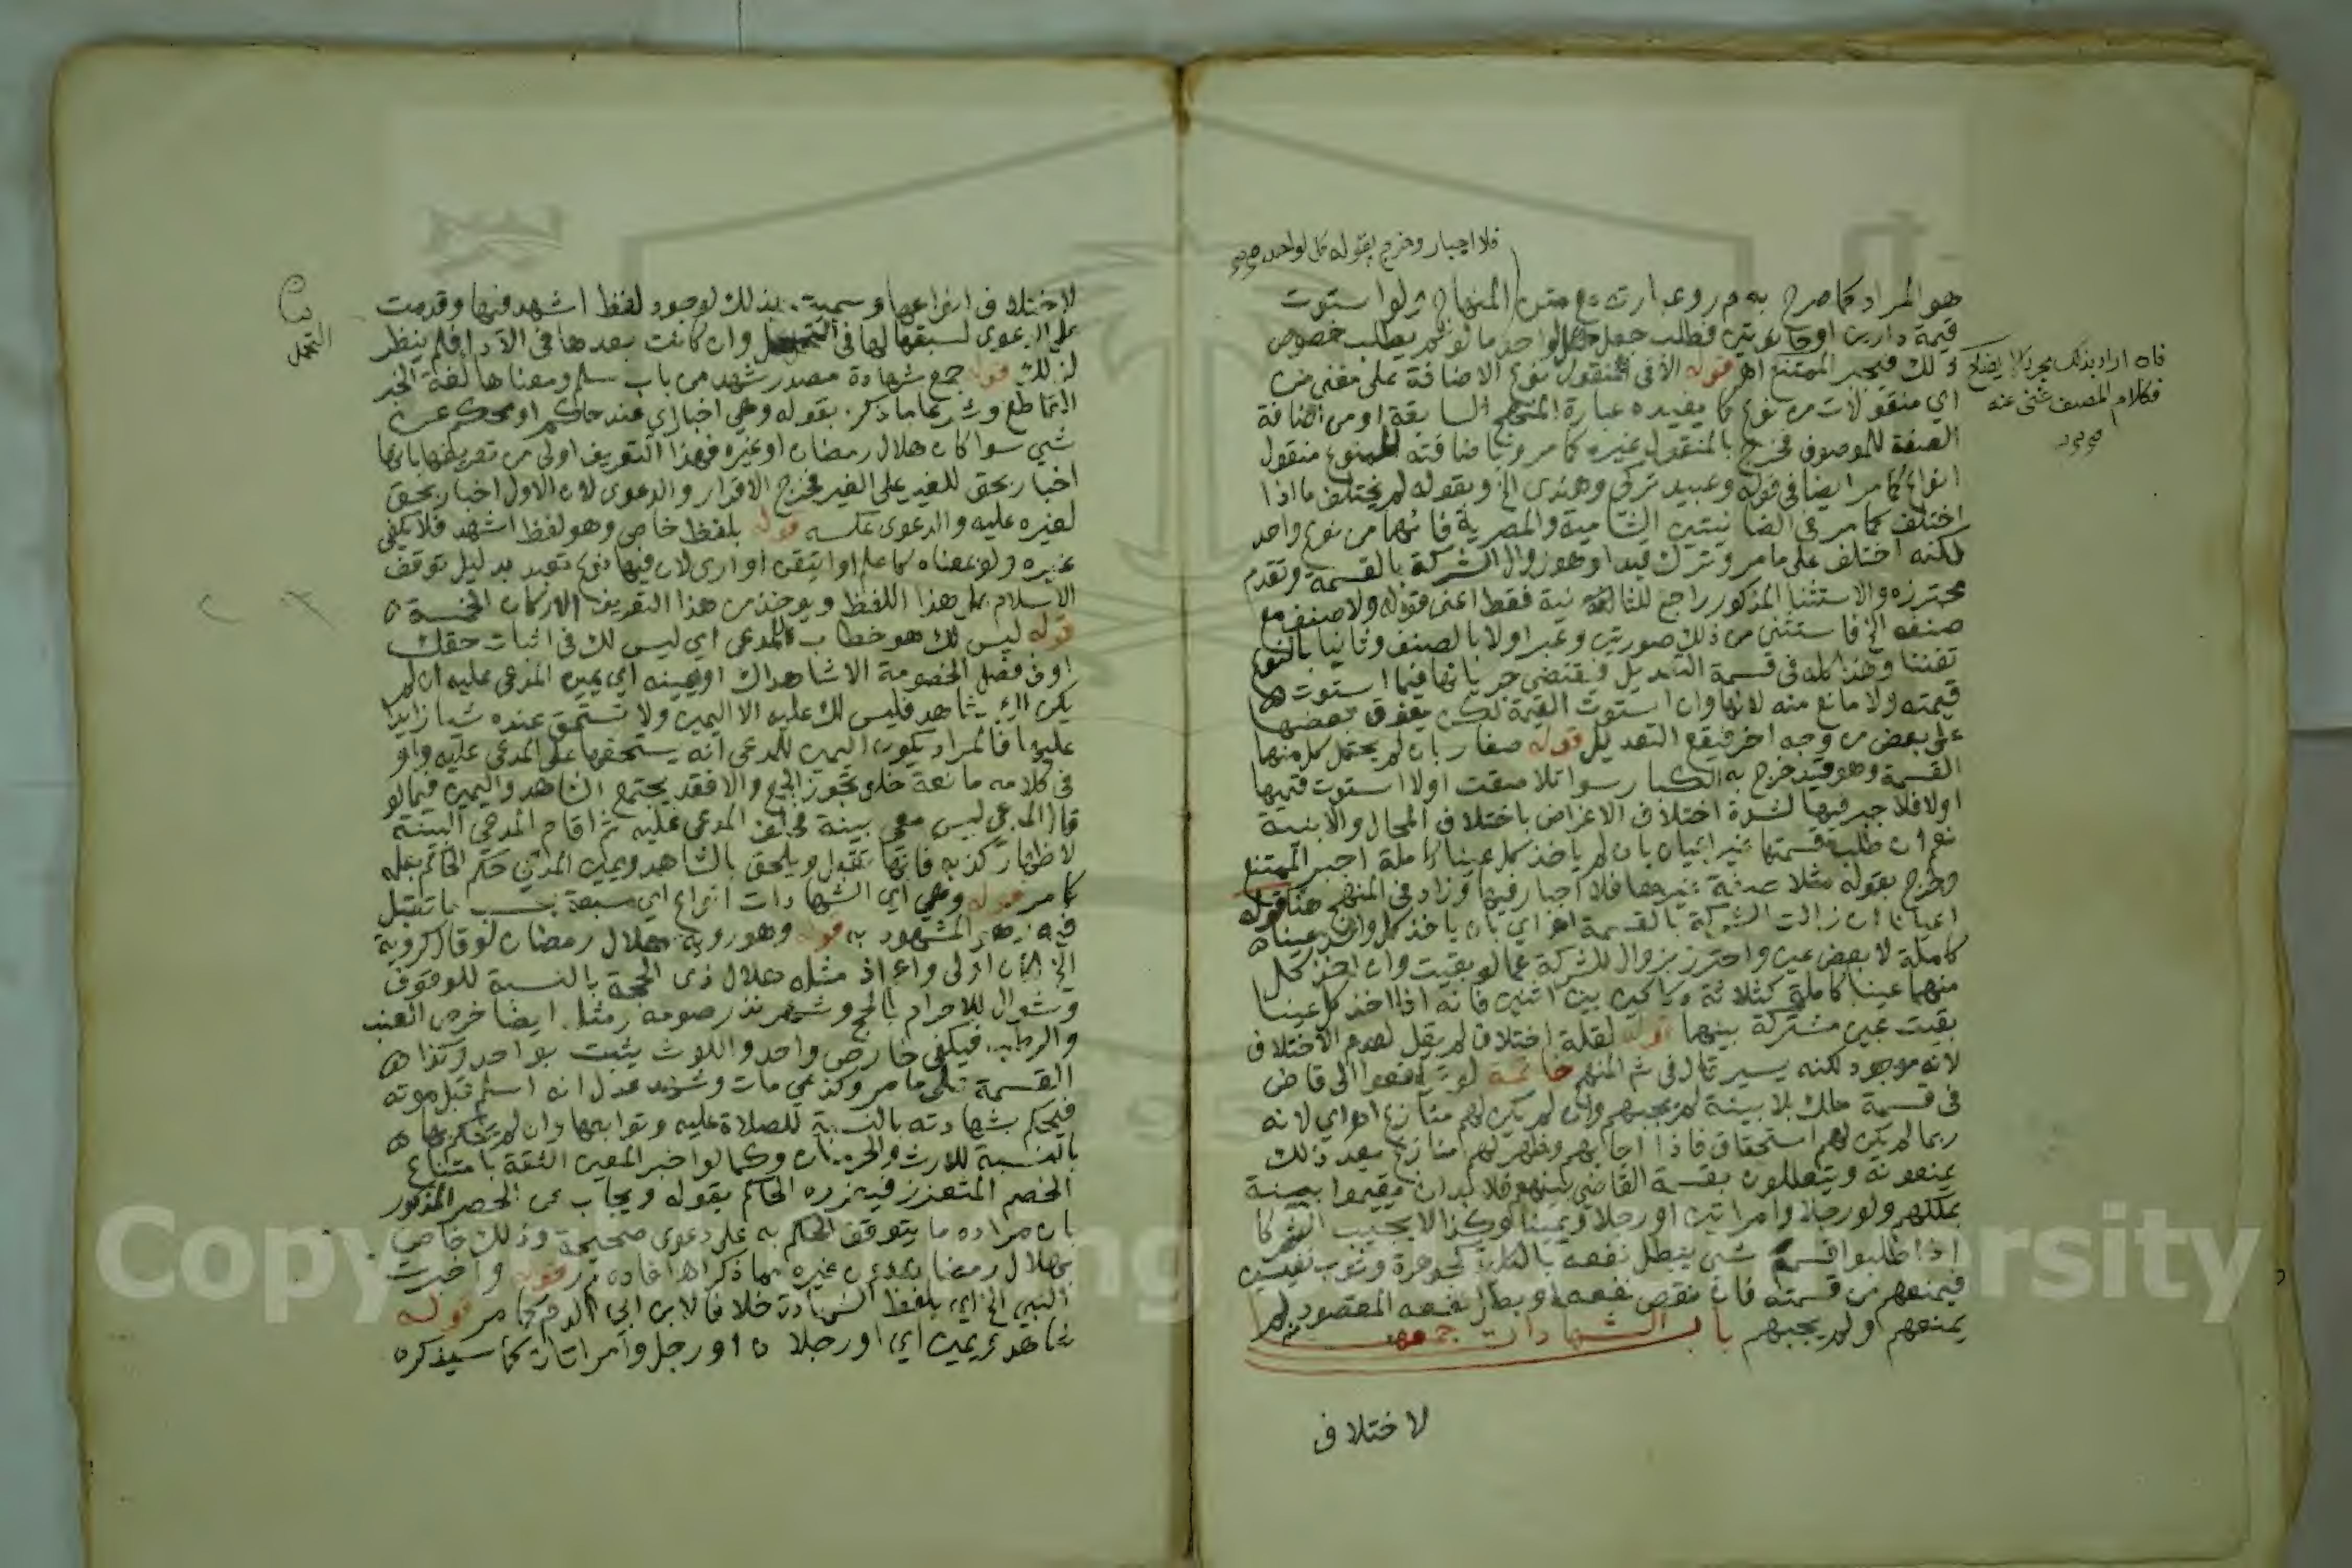 فلا اجبار وخرج بقوله كل لواحد صح
هو المراد كما صرح به م ر وعبارته مع متن المنهاج ولو استوت
قيمة دارين او حانوتين فطلب جعل كل لواحد ما لو لم يطلب خصوص
ذلك فيجبر الممتنع اهـ قوله الا في منقول نوع الاضافة على معنى من
اي منقولات من نوع كما يفيده عبارة المنهج السابقة او من اضافة
الصفة للموصوف فخرج بالمنقول غيره كما مر وباضافته لنوع منقول
انواع كما مر ايضا في قوله وعبيد تركي وهندي الخ وبقوله لم يختلف ما اذا
اختلف كما مر في الضانيتين الشامية والمصرية فانهما من نوع واحد
لكنه اختلف على ما مر وترك قيدا وهو زوال الشركة بالقسمة وتقدم
محترزه والاستثنا المذكور راجع للثانية فقط اعني قوله ولا صنف مع
صنفه الخ فاستثنى من ذلك صورتين وعبر اولا بالصنف وثانيا بالنوع
تفننا وهذا كله في قسمة التعديل فمقتضى جريانها فيما استوت
قيمته ولا مانع منه لانها وان استوت القيمة لكن يفوق بعضها
على بعض من وجه اخر فيقع التعديل قوله صغار بان لم يحتمل كل منها
القسمة وهو قيد خرج به الكبار سوا تلاصقت اولا استوت قيمها
اولا فلا جبر فيها لشدة اختلاف الاغراض باختلاف المحال والابنية
نعم ان طلب قسمتها غير اعيان بان لم ياخذ كل عينا كاملة اجبر الممتنع
وخرج بقوله مثلا صفية غيرها فلا اجبار فيها وزاد في المنهج هنا قوله
اعيانا ان زالت الشركة بالقسمة اهـ اي بان ياخذ كل واحد عينا
كاملة لا بعض عين واحترز بزوال الشركة عما لو بقيت وان اخذ كل
منهما عينا كاملة كثلاثة دكاكين بين اثنين فانه اذا اخذ كل عينا
بقيت عين مشتركة بينهما قوله لقلة اختلاف لم يقل لعدم الاختلاف
لانه موجود لكنه يسير قال في شم المنهج خاتمة لو ترافعوا الى قاض
في قسمة ملك بلا بينة لم يجبهم وان لم يكن لهم منازع اهـ اي لانه
ربما لم يكن لهم استحقاق فاذا اجابهم وظهر لهم منازع بعد ذلك
يمنعونه ويتعللون بقسمة القاضي بينهم فلا بد ان يقيموا بينة
بملكهم ولو رجلا وامراتين او رجلا ويمينا وكذا لا يجيب الشركا
اذا طلبوا قسمة شي يبطل نفعه بالكلية كجوهرة وثوب نفيسين
فيمنعهم من قسمته فان نقص نفعه او بطل نفعه المقصود لم
يمنعهم ولم يجبهم باب الشهادات جمعها
لاختلاف
فان اراد بذلك مجرد الايضاح
فكلام المصنف غني عنه
لاختلاف انواعها وسميت بذلك لوجود لفظ اشهد فيها وقدمت
على الدعوى لسبقها لها في التحمل وان كانت بعدها في الادا فلم ينظر
لذلك قوله جمع شهادة مصدر شهد من باب سلم ومعناها لغة الخبر
القاطع وشرعا ما ذكره بقوله وهي اخبار اي عند حاكم او محكم عن
شيي سوا كان هلال رمضان او غيره فهذا التعريف اولى من تعريفها بانها
اخبار بحق للغير على الغير فخرج الاقرار والدعوى لان الاول اخبار بحق
لغيره عليه والدعوى عكسه قوله بلفظ خاص وهو لفظ اشهد فلا يكفي
غيره ولو بمعناه كاعلم او اتيقن او ارى لان فيها نوع تعبد بدليل توقف
الاسلام على هذا اللفظ ويوخذ من هذا التعريف الاركان الخمسة
قوله ليس لك هو خطاب للمدعي اي ليس لك في اثبات حقك
او في فصل الخصومة الا شاهداك او يمينه اي يمين المدعى عليه ان لم
يكن لك شاهد فليس لك عليه الا اليمين ولا تستحق عنده شيا زايدا
عليها فالمراد بكون اليمين للمدعي انه يستحقها على المدعى عليه واو
في كلامه مانعة خلو تجوز الجمع والا فقد يجتمع الشاهد واليمين فيما لو
قال المدعي ليس معي بينة فحلف المدعى عليه ثم اقام المدعي البينة
لاظهار كذبه فانها تقبل ويلحق بالشاهد ويمين المدعي حكم الحاكم بعلمه
كما مر قوله وهي اي الشهادات انواع اي سبعة بحسب ما تقبل
فيه وهو المشهود به قوله وهو روية هلال رمضان لو قال كروية
الخ لكان اولى واعم اذ مثله هلال ذي الحجة بالنسبة للوقوف
وشوال للاحرام بالحج وشهر نذر صومه ومثله ايضا خرص العنب
والرطب فيكفي خارص واحد واللوث يثبت بواحد وكذا
القسمة على ما مر وكذمي مات وشهد عدل انه اسلم قبل موته
فيحكم بشهادته بالنسبة للصلاة عليه وتوابعها وان لم يحكم بها
بالنسبة للارث والحرمان وكما لو اخبر المعين الثقة بامتناع
الخصم المتعزز فيعزره الحاكم بقوله ويجاب عن الحصر المذكور
بان مراده ما يتوقف الحكم به على دعوى صحيحة وذلك خاص
بهلال رمضان دون غيره مما ذكر اهـ افاده م ر قوله واخبرت
النبي الخ اي بلفظ الشهادة خلافا لابن ابي الدم كما مر قوله
شاهد ويمين اي او رجلان او رجل وامراتان كما سيذكره
التحمل